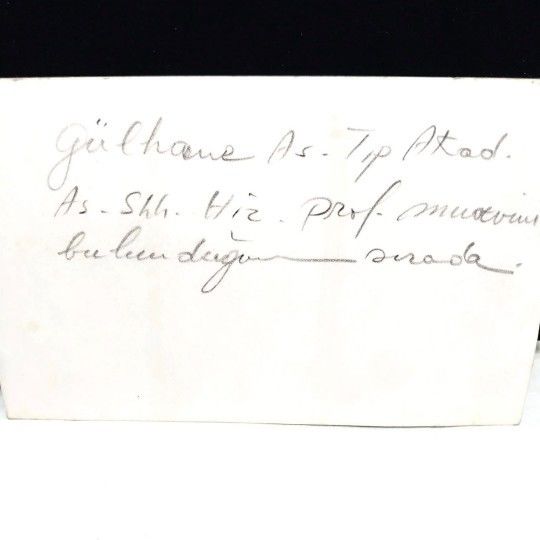 Gülhane As. Tıp Akad.
As. Shh. Hiz. Prof. muavini
bulunduğum sırada.